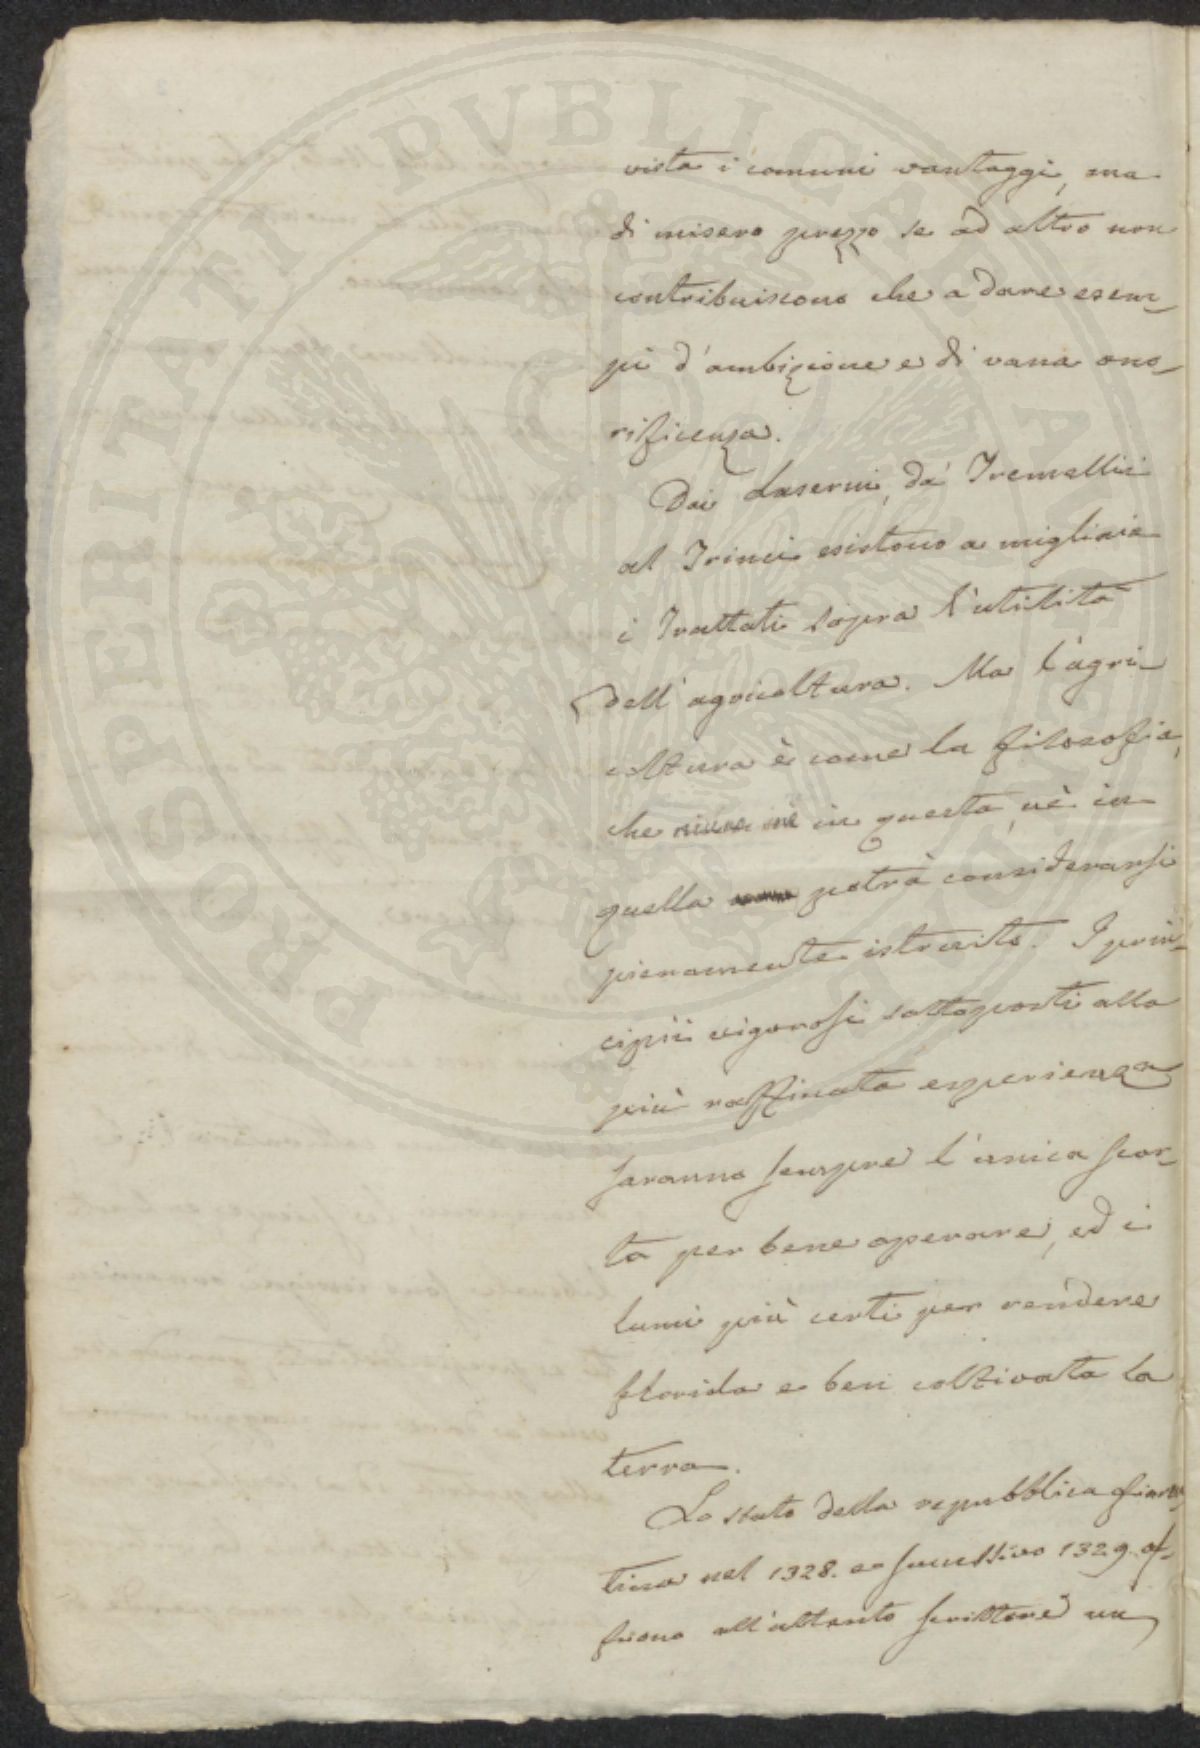 PROSPERITATI PVBLICAE AVGENDAE
vista i comuni vantaggi, ma
di misero prezzo se ad altro non
contribuiscono che a dare esem-
pi d'ambizione e di vana ono-
rificenza.
Dai Laserni, da' Tremellii
al Trinci esistono a migliaia
i Trattati sopra l'utilità
dell'agricoltura. Ma l'agri-
coltura è come la filosofia,
che in questa, nè in
quella potrà considerarsi
pienamente istruito. I prin-
cipii rigorosi sottoposti alla
più raffinata esperienza
saranno sempre l'unica scor-
ta per bene operare, ed i
lumi più certi per rendere
florida e ben coltivata la
terra.
Lo stato della repubblica fioren-
tina nel 1328. e successivo 1329. of-
frono all'attento scrittore un